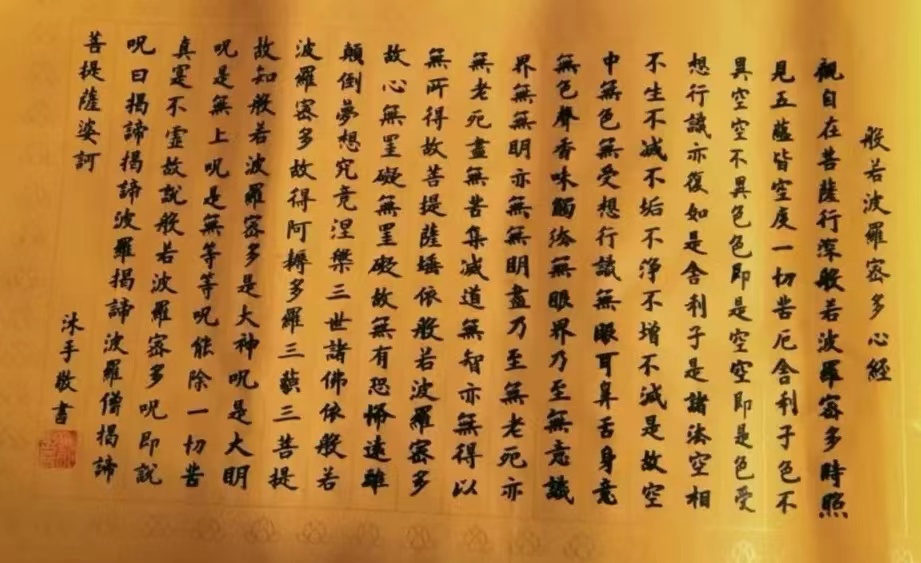 般若波羅密多心經
觀自在菩薩行深般若波羅密多時照
見五蘊皆空度一切苦厄舍利子色不
異空空不異色色即是空空即是色受
想行識亦復如是舍利子是諸法空相
不生不滅不垢不淨不增不減是故空
中無色無受想行識無眼耳鼻舌身意
無色聲香味觸法無眼界乃至無意識
界無無明亦無無明盡乃至無老死亦
無老死盡無苦集滅道無智亦無得以
無所得故菩提薩埵依般若波羅密多
故心無罣礙無罣礙故無有恐怖遠離
顛倒夢想究竟涅槃三世諸佛依般若
波羅密多故得阿耨多羅三藐三菩提
故知般若波羅密多是大神呪是大明
呪是無上呪是無等等呪能除一切苦
真實不虛故說般若波羅密多呪即說
呪曰揭諦揭諦波羅揭諦波羅僧揭諦
菩提薩婆訶
沐手敬書